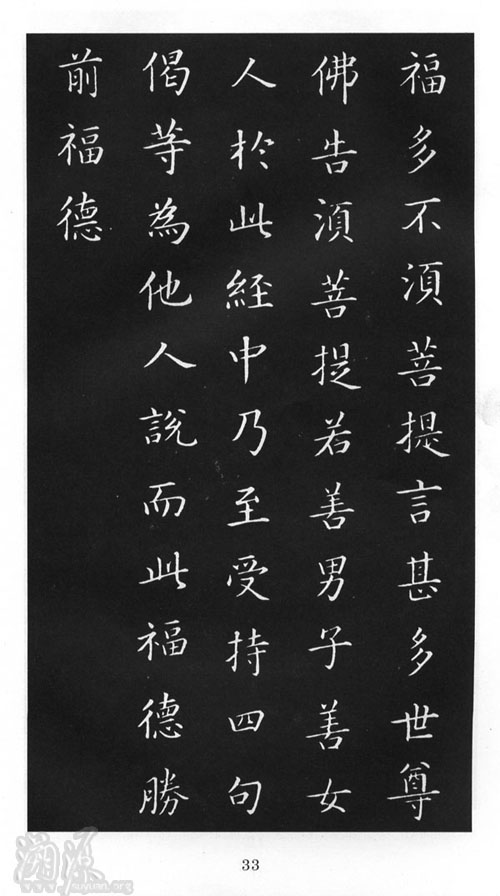 福多不湏菩提言甚多世尊
佛告湏菩提若善男子善女
人於此経中乃至受持四句
偈等為他人說而此福德勝
前福德
溯源
www.suyuan.org
33